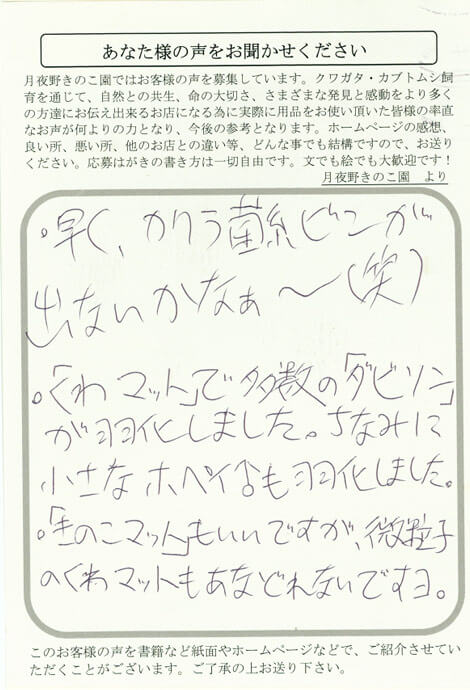 あなた様の声をお聞かせください
月夜野きのこ園ではお客様の声を募集しています。クワガタ・カブトムシ飼
育を通じて、自然との共生、命の大切さ、さまざまな発見と感動をより多く
の方達にお伝え出来るお店になる為に実際に用品をお使い頂いた皆様の率直
なお声が何よりの力となり、今後の参考となります。ホームページの感想、
良い所、悪い所、他のお店との違い等、どんな事でも結構ですので、お送り
ください。応募はがきの書き方は一切自由です。文でも絵でも大歓迎です！
月夜野きのこ園　より
。早く、カワラ菌糸ビンが
出ないかなぁ～(笑)
。「くわマット」で多数の「ダビソン」
が羽化しました。ちなみに
小さなホペイ♂も羽化しました。
。「きのこマット」もいいですが、微粒子
のくわマットもあなどれないですヨ。
このお客様の声を書籍など紙面やホームページなどで、ご紹介させてい
ただくことがございます。ご了承の上お送り下さい。